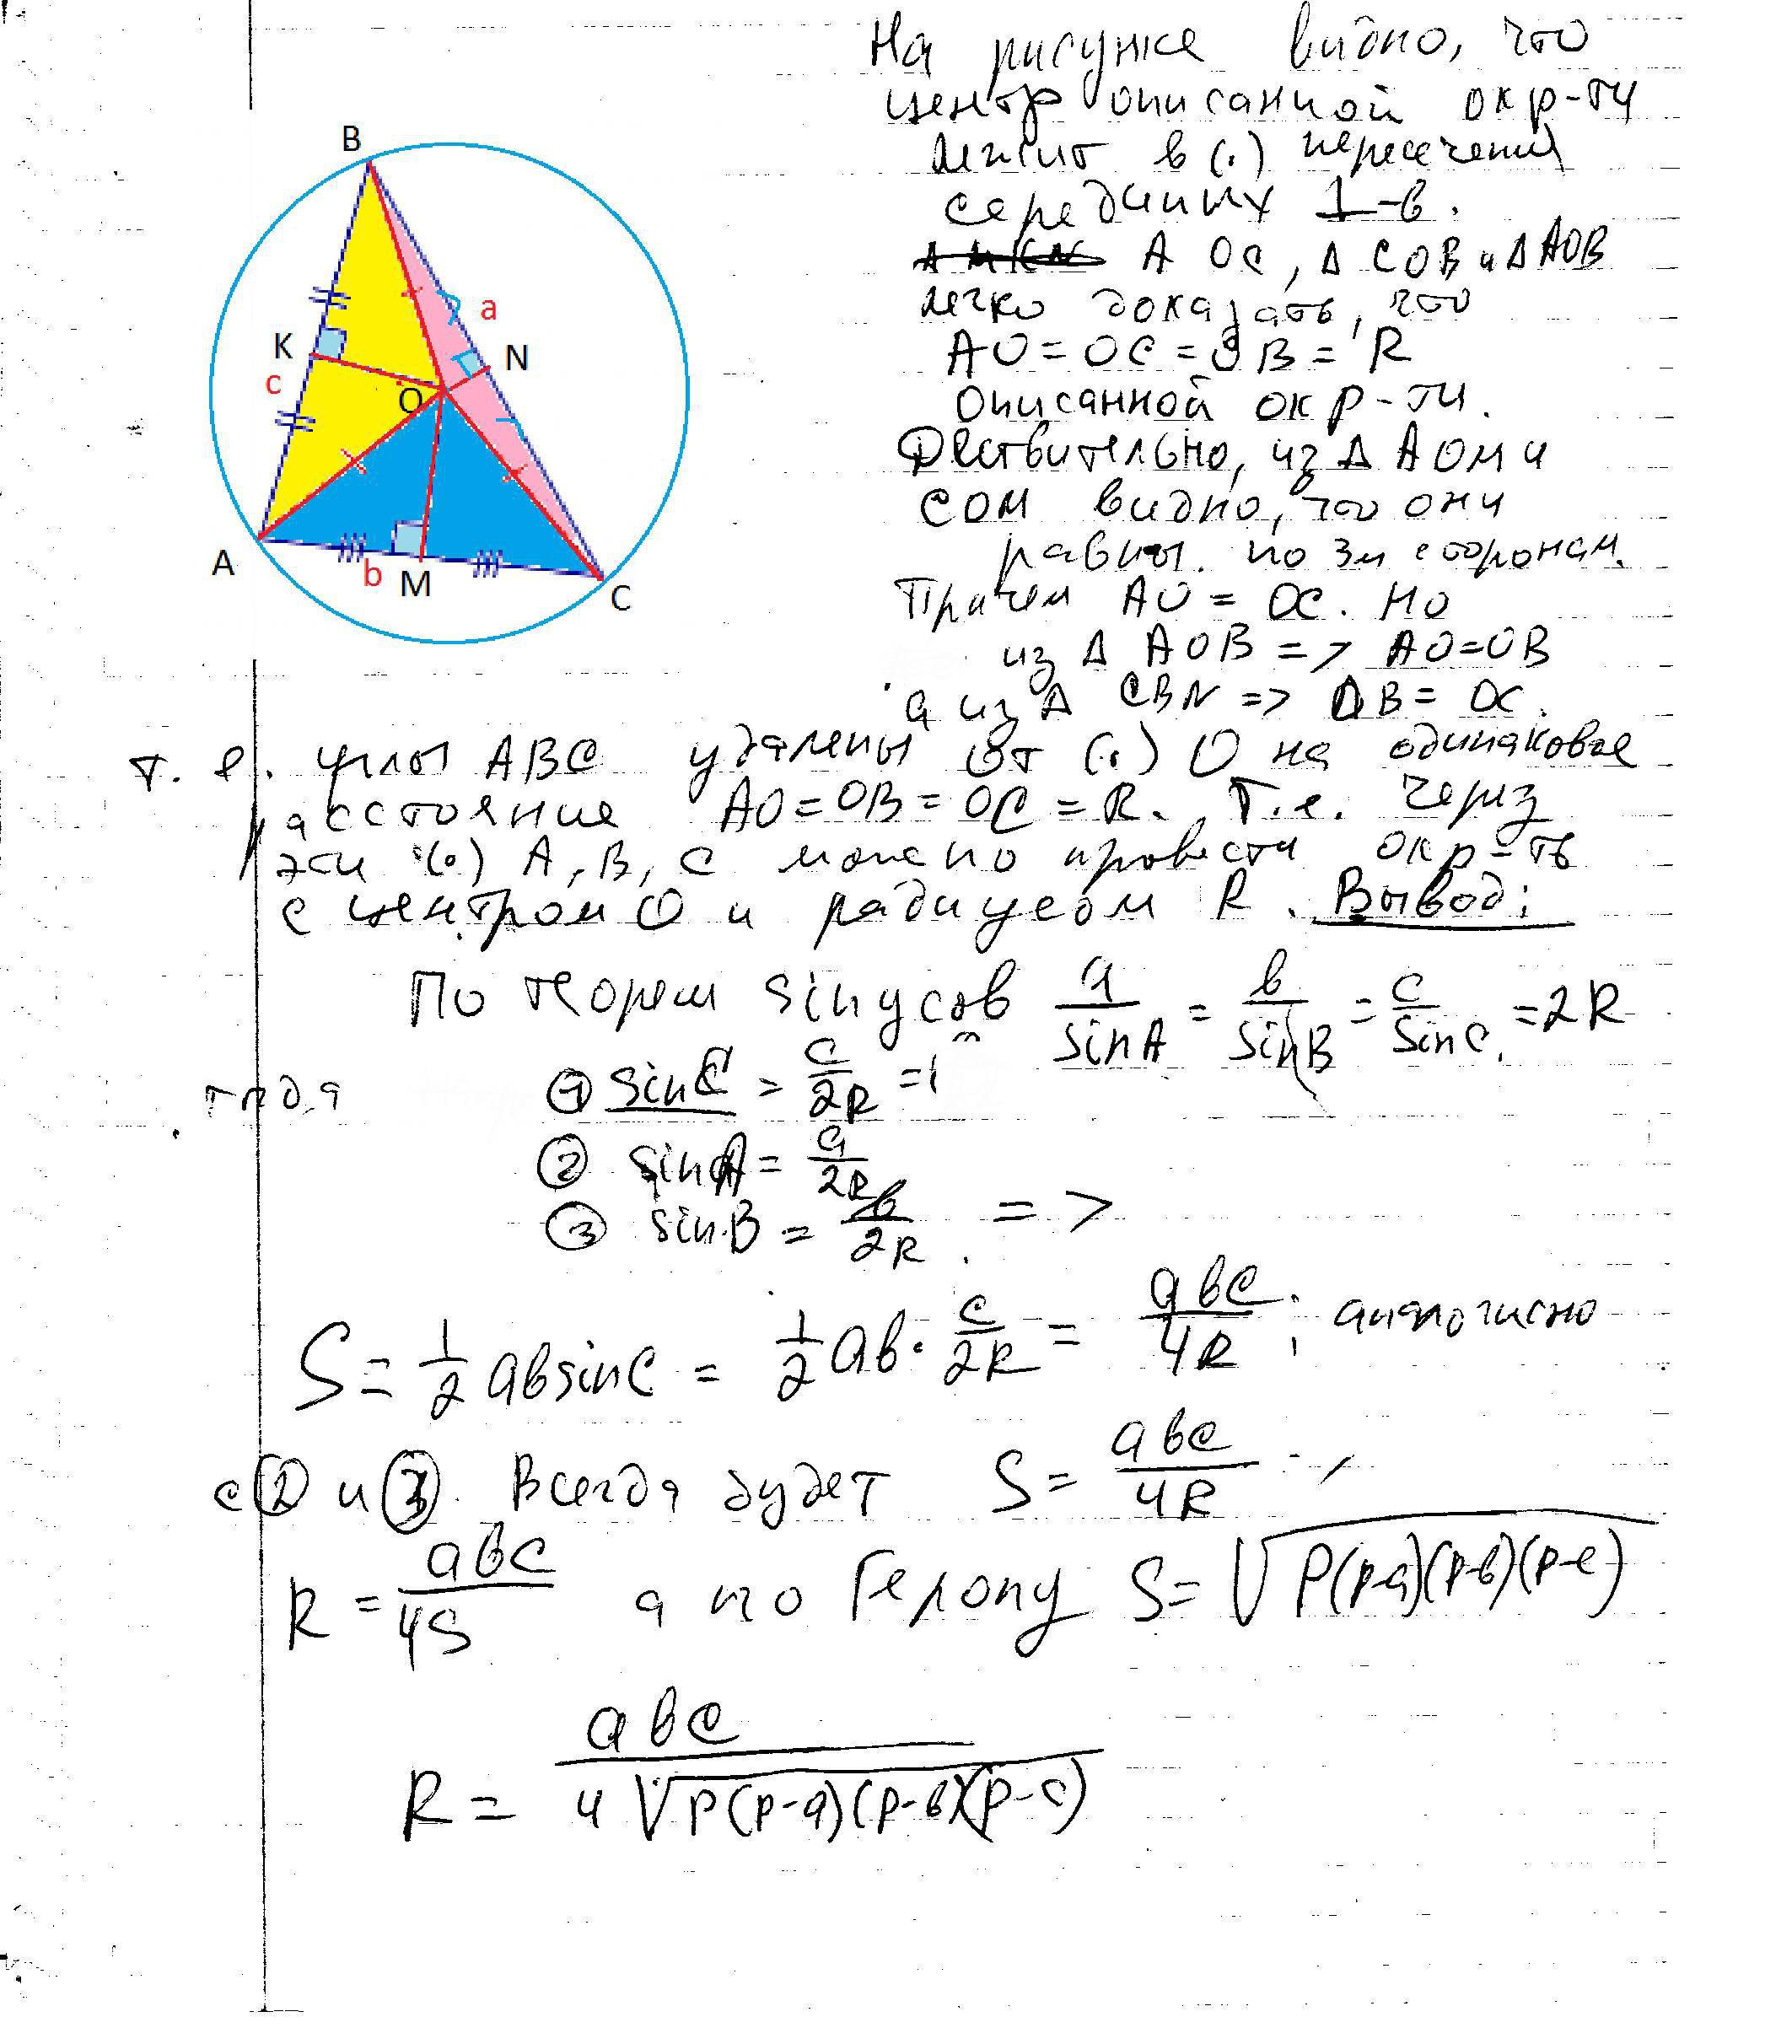 B
a
K
N
c
O
A
b
M
C
На рисунке видно, что
центр описанной окр-ти
лежит в (.) пересечения
серединных ⊥-в.
A OC, Δ COB и Δ AOB
легко доказать, что
AO = OC = OB = R
описанной окр-ти.
Дествительно, из Δ AOM и
COM видно, что они
равны. по 3м сторонам.
Причем AO = OC. Но
из Δ AOB => AO=OB
а из Δ CBN => OB = OC.
т. е. углы ABC удалены от (.) O на одинаковое
расстояние AO = OB = OC = R. Т.е. через
эти (.) A, B, C можно провести окр-ть
с центром O и радиусом R. Вывод:
По теорем sinусов a/sinA = b/sinB = c/sinC = 2R
тогда ① sinC = c/2R =
② sinA = a/2R
③ sinB = b/2R =>
S = 1/2 absinC = 1/2 ab · c/2R = abc/4R ; аналогично
с ② и ③. Всегда будет S = abc/4R
R = abc/4S а по Герону S = √p(p-a)(p-b)(p-c)
R = abc/4√p(p-a)(p-b)(p-c)